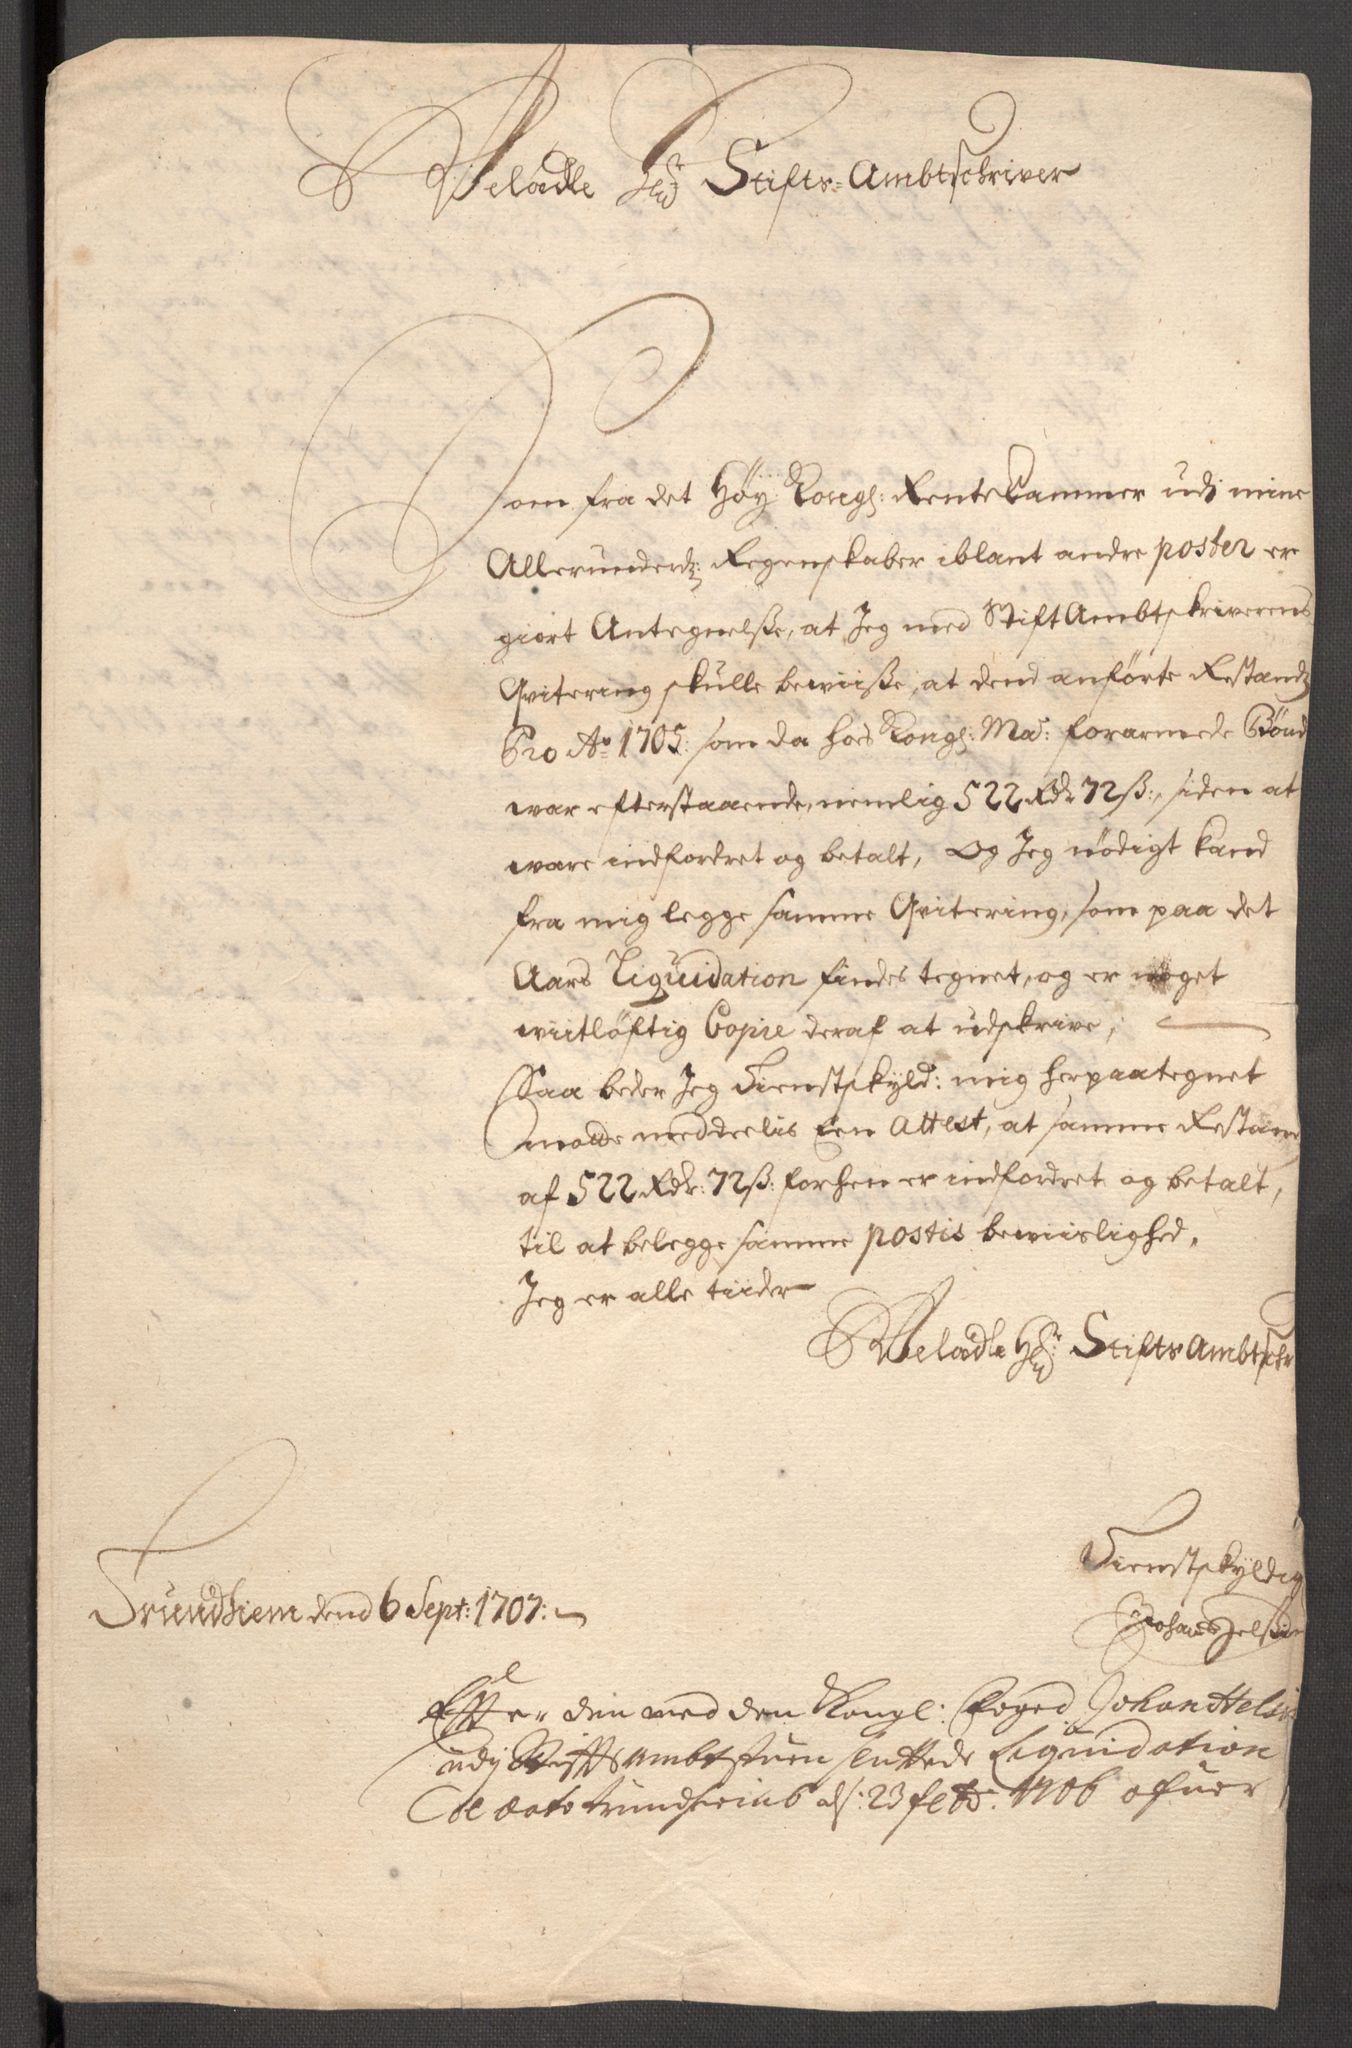 Weladle Hr Stifts-Ambtschriver
Som fra det Høy Kongl: Rentekammer udj mine
Allerunderd: Regenskaber iblant andre poster er
giort Antegnelsse, at Jeg med StiftAmbtskriverens
Qvitering skulle bewiisse, at dend anførte Restandz
Pro Ao 1705: som da hos Kongl: Mas: forarmede Bønd
war efterstaaende, nemlig 522 Rdr 72 ß:, siden at
ware indfordret og betalt, Og Jeg nødigt kand
fra mig legge samme Qvitering, som paa det
Aars Liquidation findes tegnet, og er noget
wiitløftig Copie deraf at udskrive,
Saa beder Jeg Tienstskyld: mig herpaategnet
motte meddeelis Een Attest, at samme Restans
af 522 Rdr: 72 ß: forhen er indfordret og betalt,
til at belegge samme postis bewiislighed,
Jeg er alle tiider
Weladle Hr: Stifts Ambtschr
Tienstskyldig
Trundhiem dend 6 Sept: 1707:
Johan Helsin
Effter den med den Kongl: Foged Johan Helsi
udj Stifts Ambtstuen sluttede Liquidation
de dato Trundheimb ds: 23 febr: 1706 ofuer